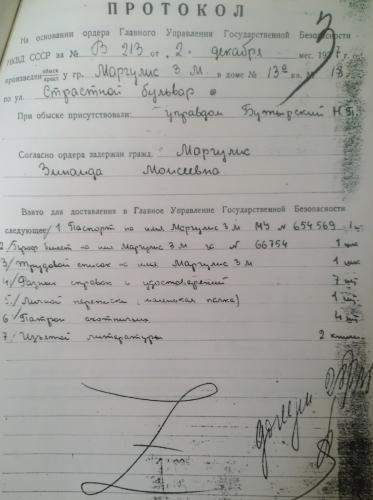 ПРОТОКОЛ
На основании ордера Главного Управления Государственной Безопасности
НКВД СССР за № В 213 от „2" декабря мес. 1937 г.
произведен обыск арест у гр. Маргулис З. М в доме № 13а кв. № 18
по ул. Страстной бульвар
При обыске присутствовали: управдом Бутырский Н
Согласно ордера задержан гражд. Маргулис
Зинаида Моисеевна
Взято для доставления в Главное Управление Государственной Безопасности
следующее: 1 Паспорт на имя Маргулис З М МУ N 654569 1
2/ билет на имя Маргулис З. М за N 66754 1 шт
3/ Трудовой список на имя Маргулис З М 1 шт
4/ Разних справок и удостоверений 7
5/ Личной переписки (маленькая папка) 1
6/ Патрон охотничьих 4
7/ Изъятой литературы 2 книги